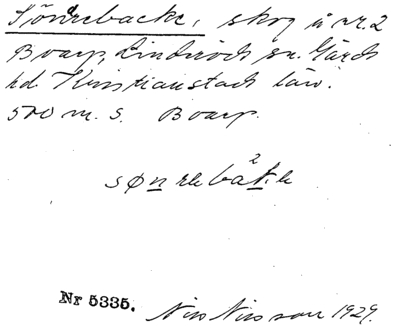 Sönrebacke, skog å nr. 2
Boarp, Linderöds sn. Gärds
hd. Kristianstads län.
500 m. S. Boarp.
sønrebak̲e
Nr 5335. Nils Nilsson 1929.